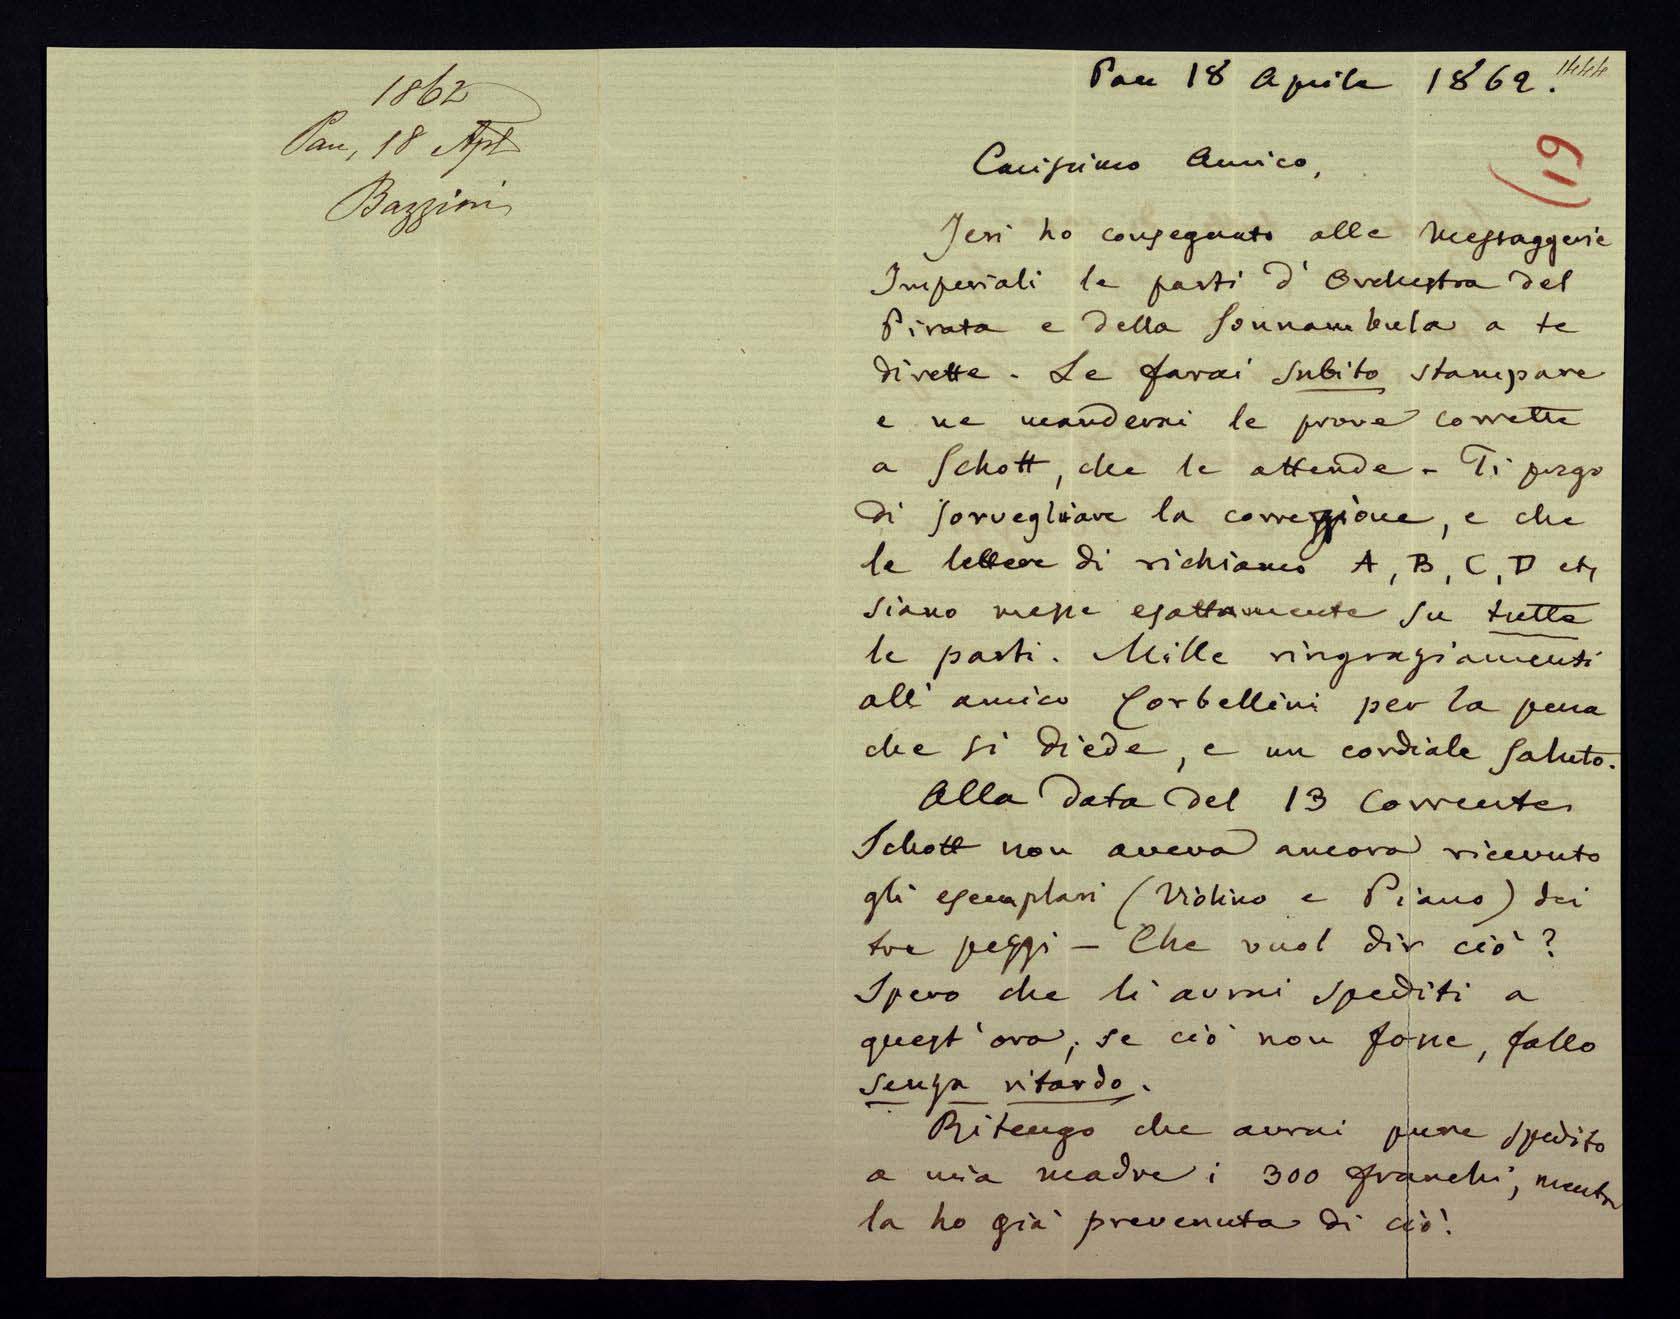 1862
Pau, 18 Apl
Bazzini
Pau 18 Aprile 1862.
(19
Carissimo Amico,
Jeri ho consegnato alle Messaggerie
Imperiali le parti d'Orchestra del
Pirata e della Sonnambula a te
dirette. Le farai subito stampare
e ne manderai le prove corrette
a Schott, che le attende - Ti prego
di sorvegliare la correzione, e che
le lettere di richiamo A, B, C, D etc
siano messe esattamente su tutte
le parti. Mille ringraziamenti
all'amico Corbellini per la pena
che si diede, e un cordiale saluto.
Alla data del 13 corrente
Schott non aveva ancora ricevuto
gli esemplari (Violino e Piano) dei
tre pezzi - Che vuol dir ciò?
Spero che li avrai spediti a
quest'ora; se ciò non fosse, fallo
senza ritardo.
Ritengo che avrai pure spedito
a mia madre i 300 franchi, mentre
la ho già prevenuta di ciò.